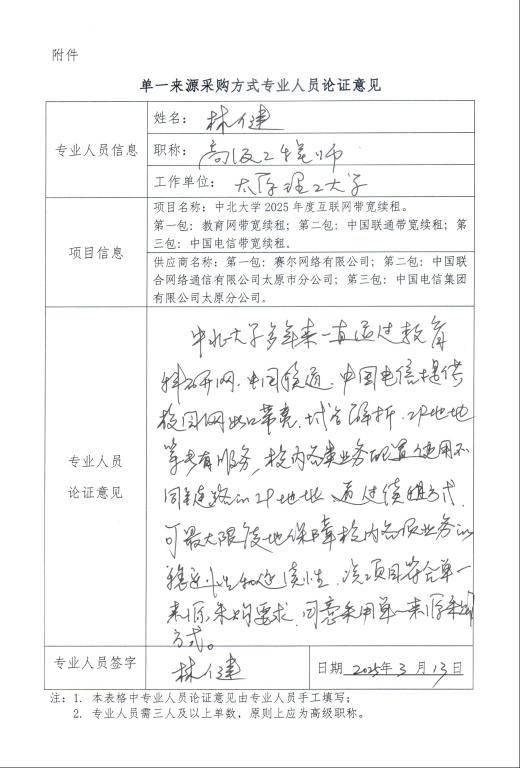 附件
单一来源采购方式专业人员论证意见
专业人员信息
姓名：林仁建
职称：高级工程师
工作单位：太原理工大学
项目信息
项目名称：中北大学 2025 年度互联网带宽续租。
第一包：教育网带宽续租；第二包：中国联通带宽续租；第
三包：中国电信带宽续租。
供应商名称：第一包：赛尔网络有限公司；第二包：中国联
合网络通信有限公司太原市分公司；第三包：中国电信集团
有限公司太原分公司。
专业人员
论证意见
中北大学多年来一直通过教育
科研网、中国联通、中国电信提供
校园网出口带宽、域名解析、IP地址
等专有服务，校内各类业务配置使用不
同链路的IP地址，通过续租方式，
可最大限度地保障校内各项业务的
稳定性和连续性，该项目符合单一
来源采购要求，同意采用单一来源采购
方式。
专业人员签字
林仁建
日期 2025年 3 月 13日
注：1. 本表格中专业人员论证意见由专业人员手工填写；
2. 专业人员需三人及以上单数，原则上应为高级职称。